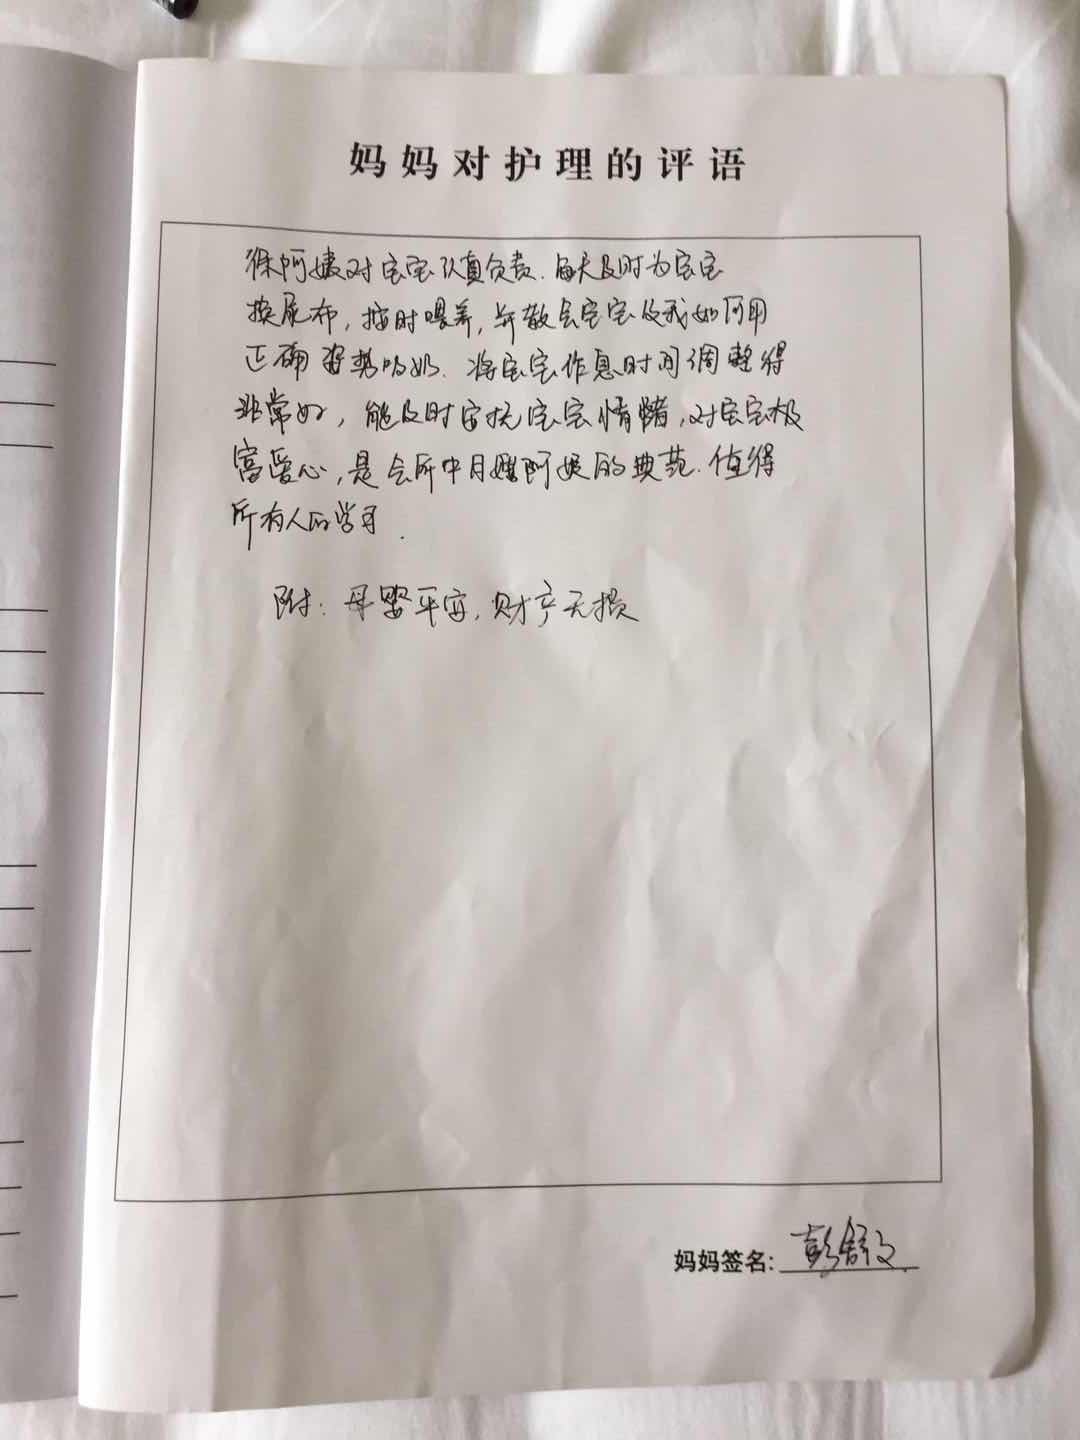 妈妈对护理的评语
徐阿姨对宝宝认真负责.每天及时为宝宝
换尿布,按时喂养,并教会宝宝及我如何用
正确姿势吸奶.将宝宝作息时间调整得
非常好,能及时安抚宝宝情绪,对宝宝极
富爱心,是会所中月嫂阿姨的典范.值得
所有人的学习.
附:母婴平安,财产无损
妈妈签名:彭舒文